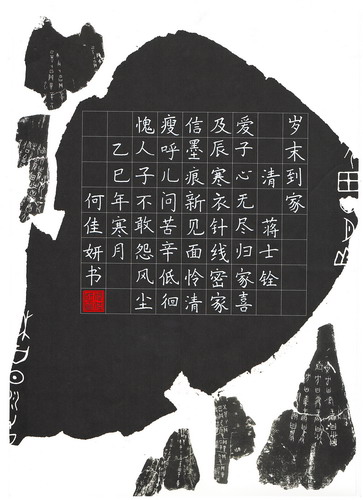 岁末到家
清 蒋士铨
爱子心无尽归家喜
及辰寒衣针线密家
信墨痕新见面怜清
瘦呼儿问苦辛低徊
愧人子不敢怨风尘
乙巳年寒月
何佳妍书